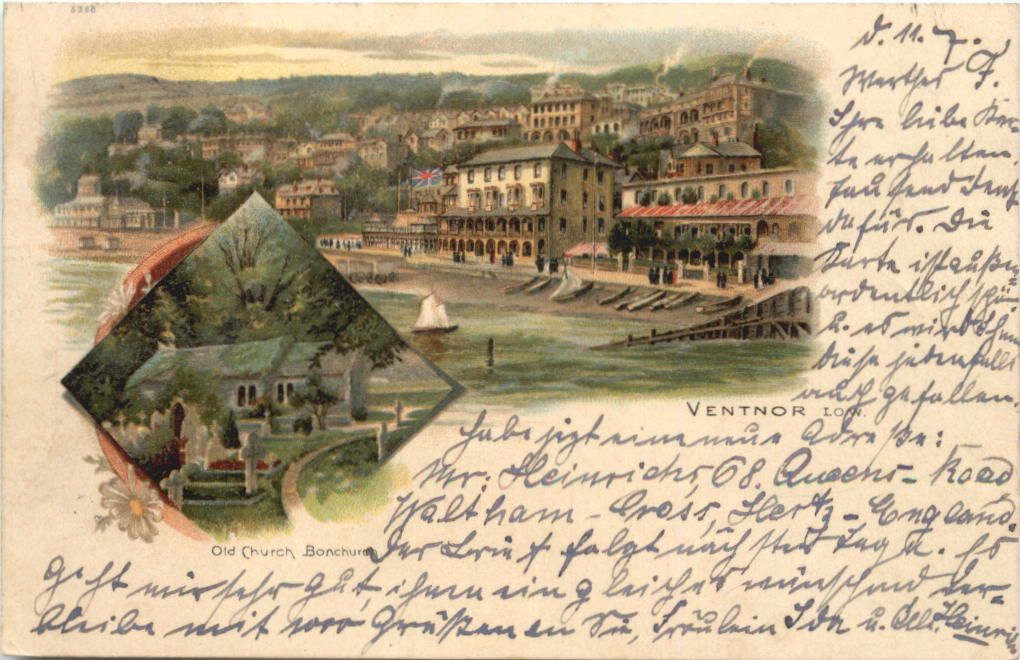 5268
d. 11. 7.
Werther F.
Ihre liebe Kar-
te erhalten,
tausend Dank
dafür. Die
Karte ist außer-
ordentlich schön
u. es wird Ihnen
diese jedenfalls
auch gefallen.
VENTNOR I.O.W.
habe jetzt eine neue Adresse:
Mr. Heinrichs, 68. Queens-Road
Waltham-Cross, Hertz-England.
Old Church, Bonchurch
Der Brief folgt nächster Tag u. Es
geht mir sehr gut, ihnen ein gleiches wünschend, ver-
bleibe mit 1000 Grüßen an Sie, Fräulein Ida u. All. Heinrich